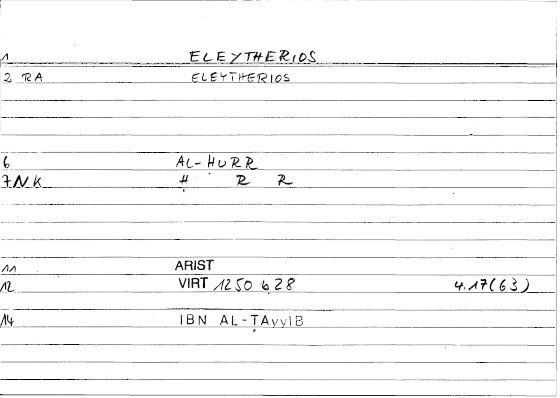 1 ELEYTHERIOS
2 RA ELEYTHERIOS
6 AL-HURR
7 NK Ḥ R R
11 ARIST
12 VIRT 1250 b 28 4.17(63)
14 IBN AL-ṬAyyIB